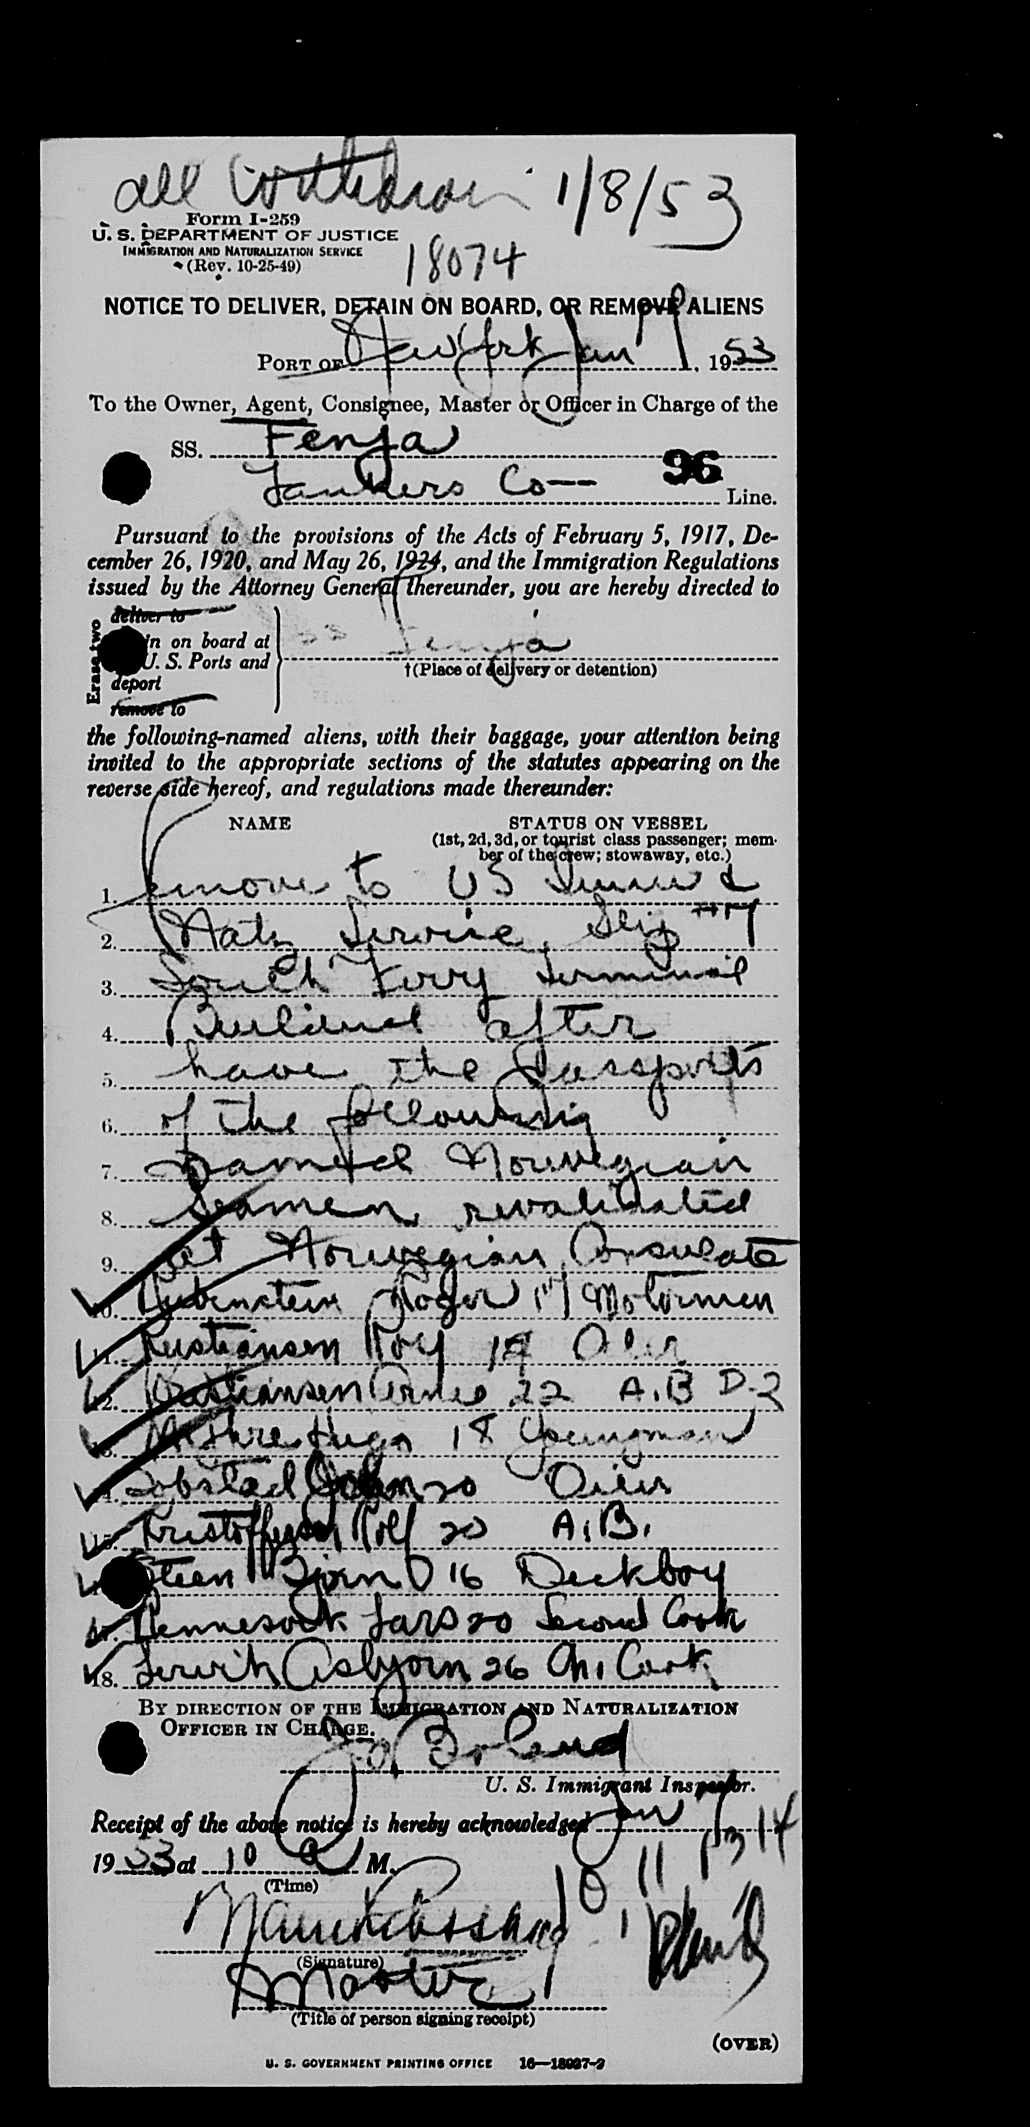 all withdrawn 1/8/53
Form I-259
U. S. DEPARTMENT OF JUSTICE
IMMIGRATION AND NATURALIZATION SERVICE
(Rev. 10-25-49)
18074
NOTICE TO DELIVER, DETAIN ON BOARD, OR REMOVE ALIENS
PORT OF New York Jan 7, 1953
To the Owner, Agent, Consignee, Master or Officer in Charge of the
SS. Fenja
Tankers Co— 96 Line.
Pursuant to the provisions of the Acts of February 5, 1917, De-
cember 26, 1920, and May 26, 1924, and the Immigration Regulations
issued by the Attorney General thereunder, you are hereby directed to
Erase two
deliver to
in on board at
U. S. Ports and
deport
remove to
SS Fenja
†(Place of delivery or detention)
the following-named aliens, with their baggage, your attention being
invited to the appropriate sections of the statutes appearing on the
reverse side hereof, and regulations made thereunder:
NAME STATUS ON VESSEL
(1st, 2d, 3d, or tourist class passenger; mem-
ber of the crew; stowaway, etc.)
1. remove to US &
2. Natz Service, Slip #7
3. South Ferry Terminal
4. after
5. have the Passports
6. of the following
7. named Norwegian
8. Seamen revalidated
9. at Norwegian Consulate
10. Rubenstein Roger 17 Motorman
11. Kristiansen Roly 19 Oiler
12. Kristiansen Arne 22 A.B D-2
13. Hugo 18 Youngman
14. Sobstad 20 Oiler
15. Kristoffersen Rolf 20 A.B.
Steen Bjorn 16 Deckboy
17. Lars 20 Second Cook
18. Asbjorn 26 Ch. Cook
BY DIRECTION OF THE IMMIGRATION AND NATURALIZATION
OFFICER IN CHARGE.
Boland
U. S. Immigrant Inspector.
Receipt of the above notice is hereby acknowledged Jan 7
1953 at 10 a M.
(Time)
10 11 13 14
(Signature)
Master
(Title of person signing receipt)
(OVER)
U. S. GOVERNMENT PRINTING OFFICE 16—18937-2